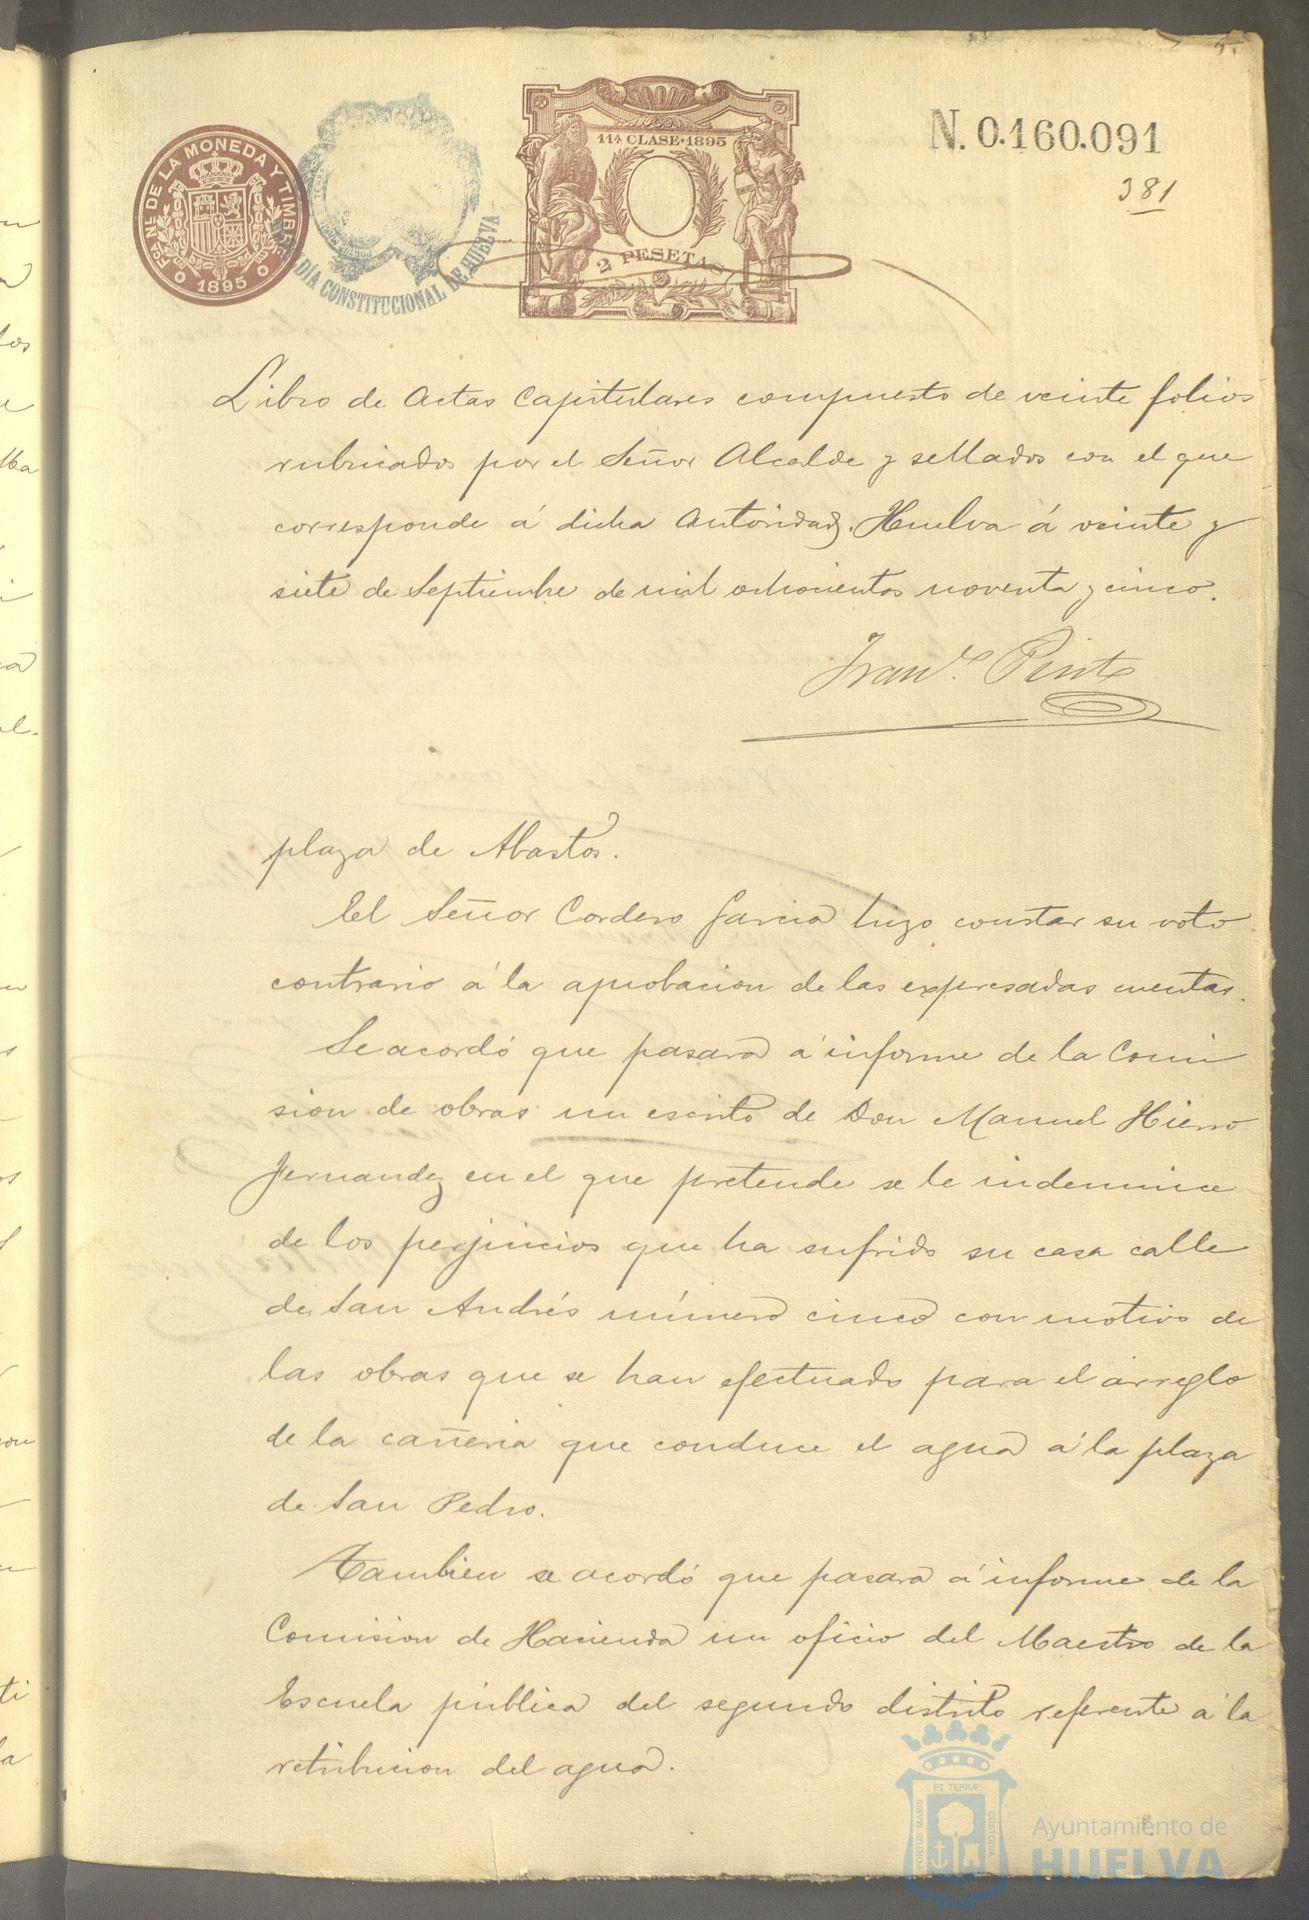 5.
FCA. NL. DE LA MONEDA Y TIMBRE
1895
ALCALDÍA CONSTITUCIONAL DE HUELVA
11ª CLASE·1895
2 PESETAS
N. 0.160.091
381
Libro de Actas Capitulares compuesto de veinte folios
rubricados por el Señor Alcalde y sellados con el que
corresponde á dicha Autoridad. Huelva á veinte y
siete de Septiembre de mil ochocientos noventa y cinco.
Franco. Pinto
plaza de Abastos.
El Señor Cordero Garcia hizo constar su voto
contrario á la aprobacion de las expresadas cuentas.
Se acordó que pasara á informe de la Comi
sion de obras un escrito de Don Manuel Hierro
Fernandez en el que pretende se le indemnice
de los perjuicios que ha sufrido su casa calle
de San Andrés número cinco con motivo de
las obras que se han efectuado para el arreglo
de la cañeria que conduce el agua á la plaza
de San Pedro.
Tambien se acordó que pasara á informe de la
Comision de Hacienda un oficio del Maestro de la
Escuela pública del segundo distrito referente á la
retribucion del agua.
PORTUS MARIS ET TERRÆ CUSTODIA
Ayuntamiento de
HUELVA